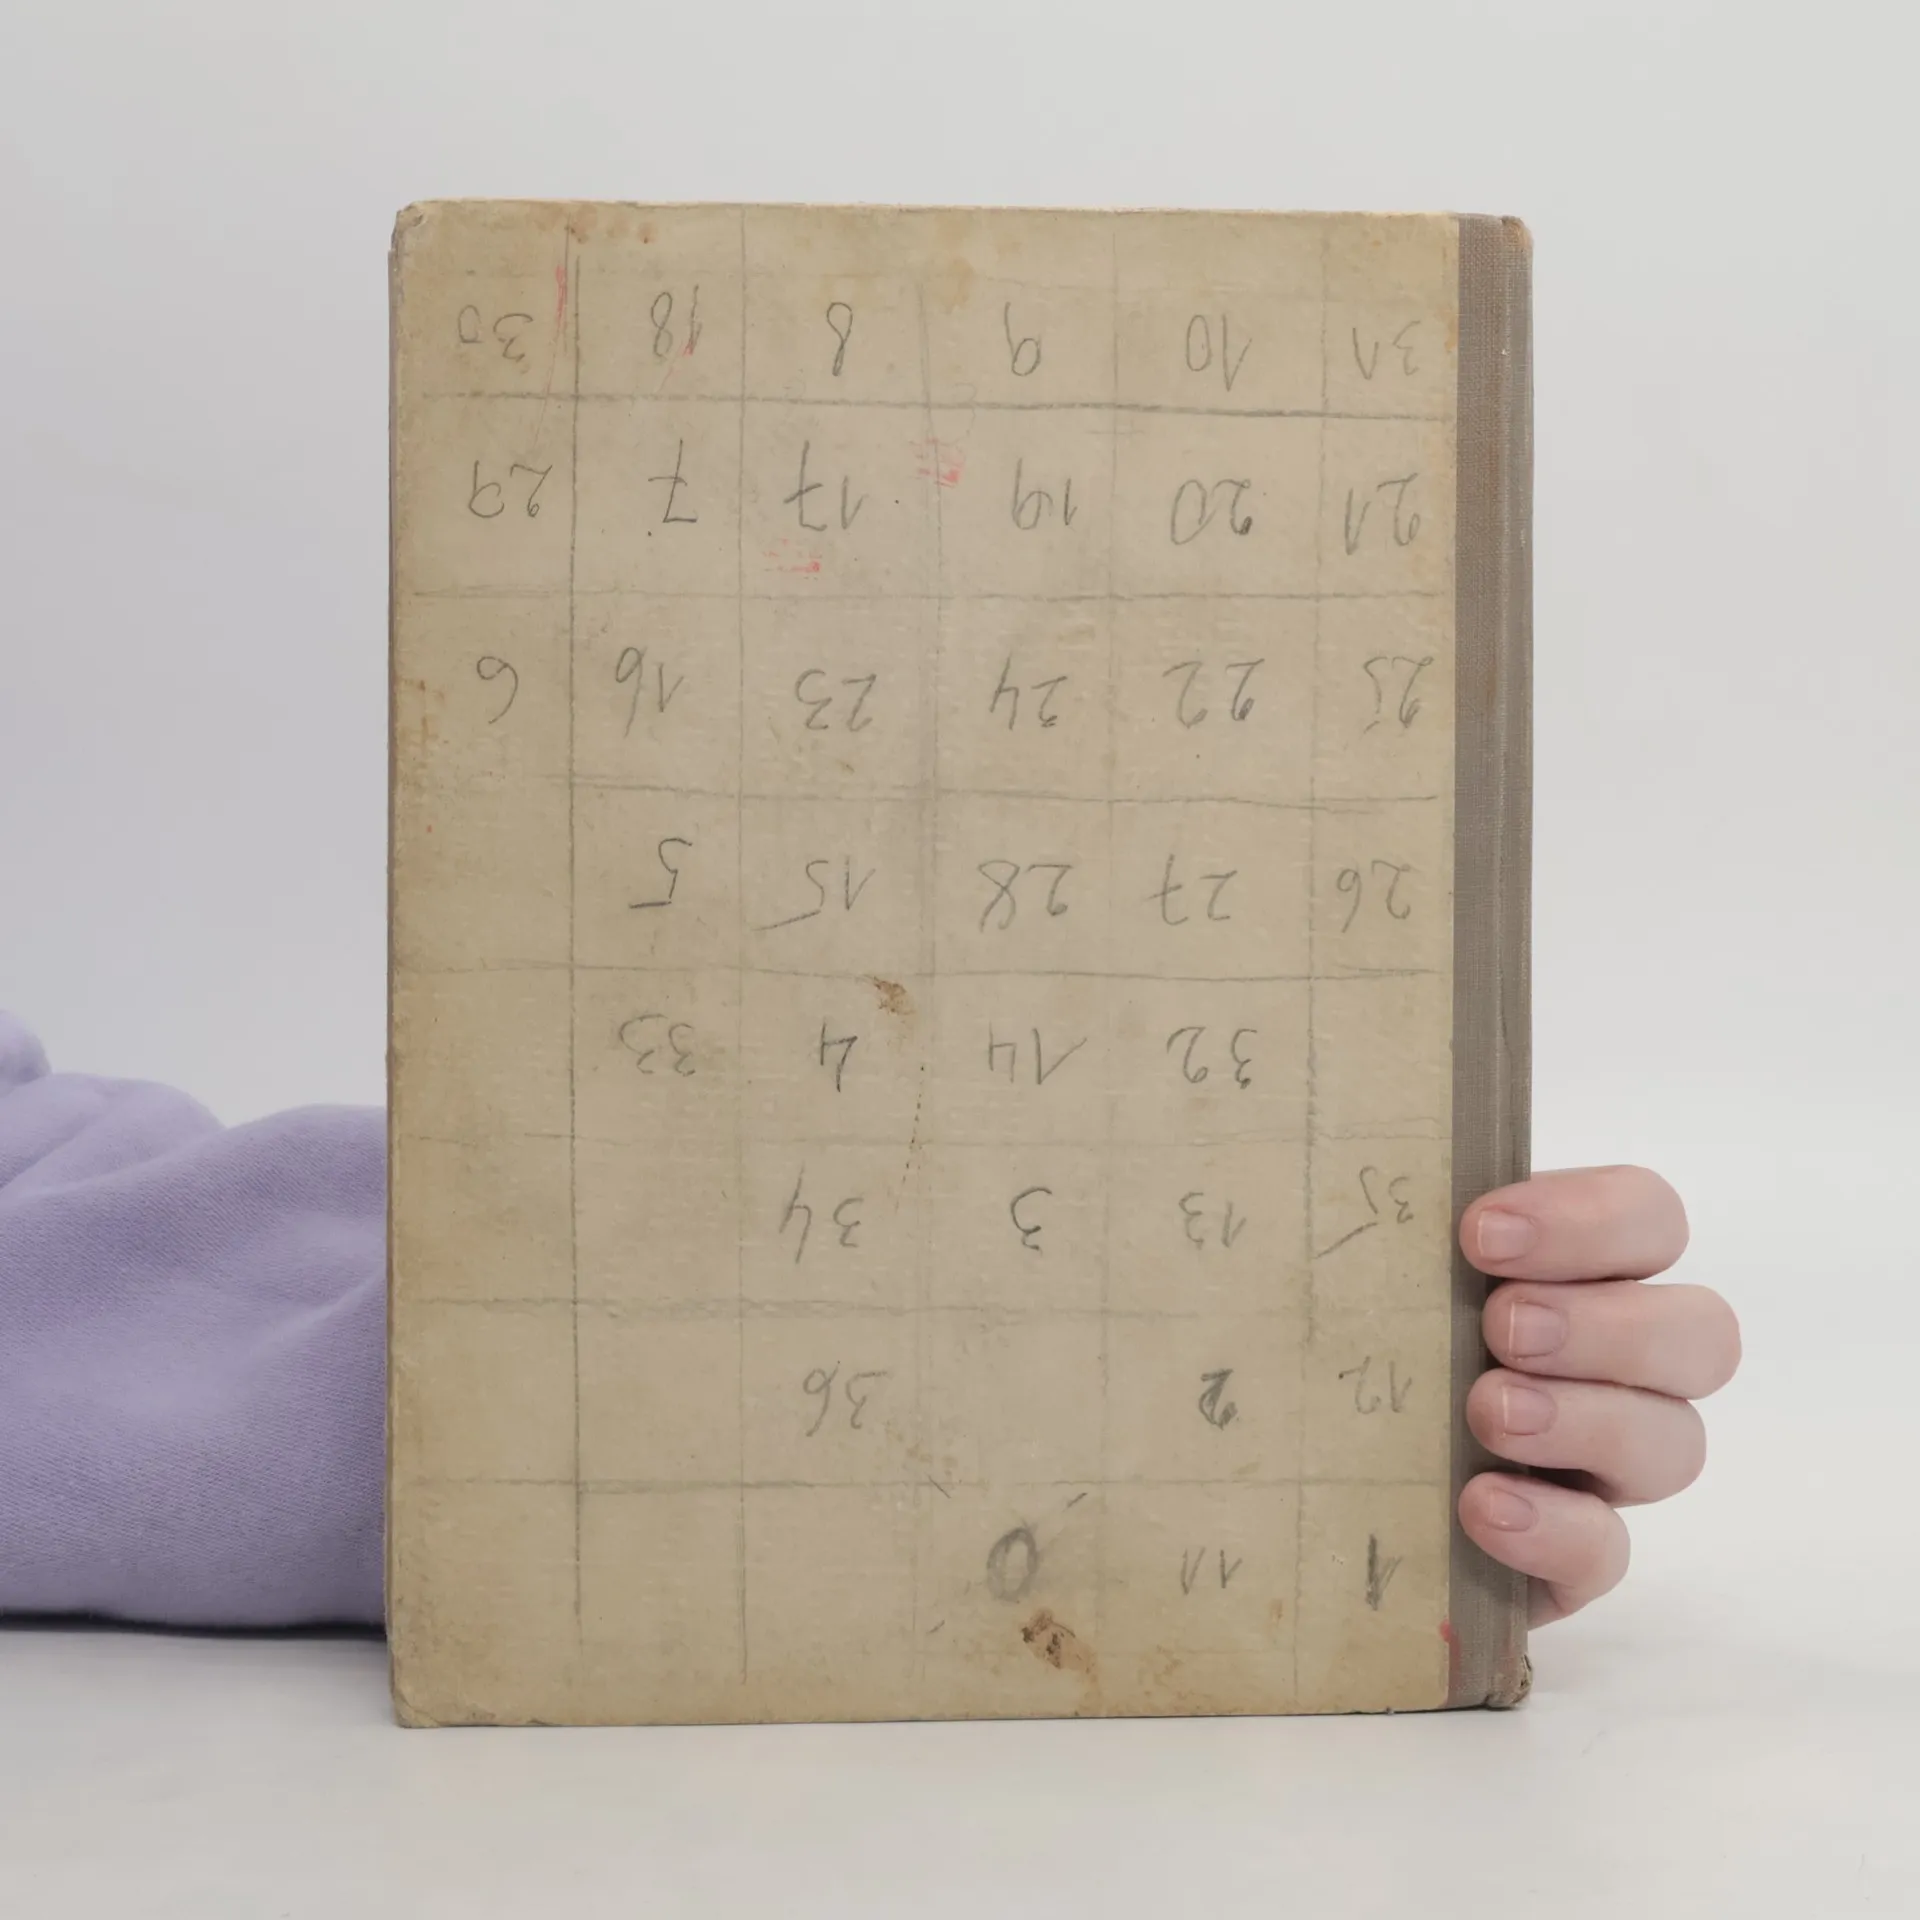 1 11 0
12 2 36
35 13 3 34
32 14 4 33
26 27 28 15 5
25 22 24 23 16 6
21 20 19 17 7 29
31 10 9 8 18 30